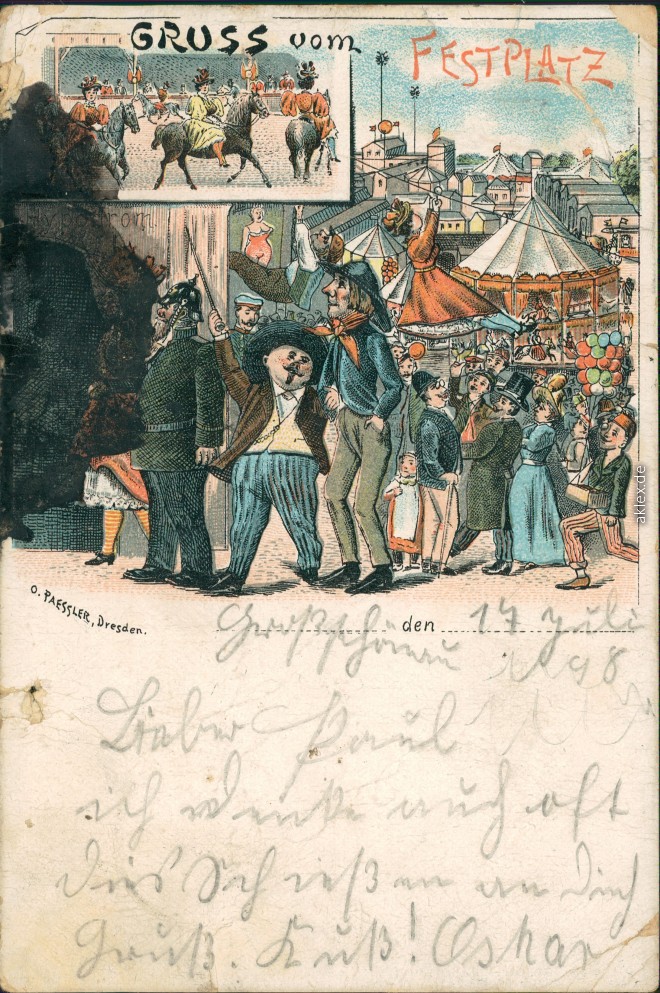 GRUSS vom
FESTPLATZ
O. PAESSLER, Dresden.
Großschönau den 17 Juli
98
Lieber Paul
ich denke auch oft
dies Schießen an Dich
Gruß. Kuß! Oskar
aklex.de